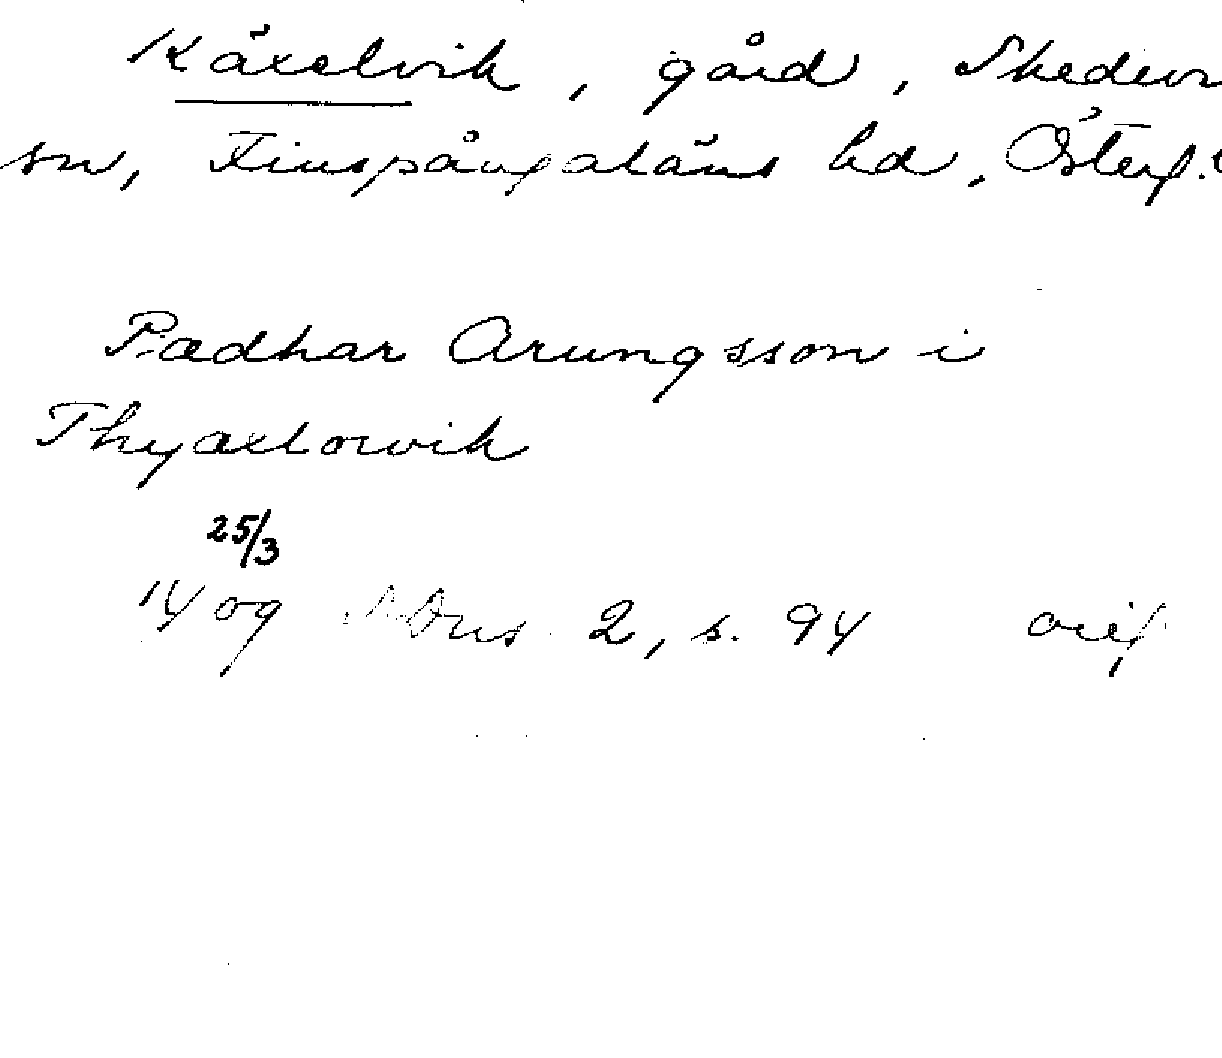 Käxelvik, gård, Skedevi
sn, Finspångaläns hd, Österg.
Pædhar Arungsson i
Thyaxlowik
25/3
1409 Dns 2, s. 94 orig